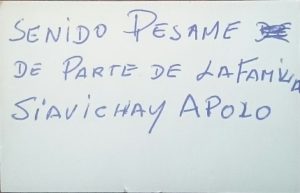 SENIDO PESAME
DE PARTE DE LA FAMILIA
SIAVICHAY APOLO